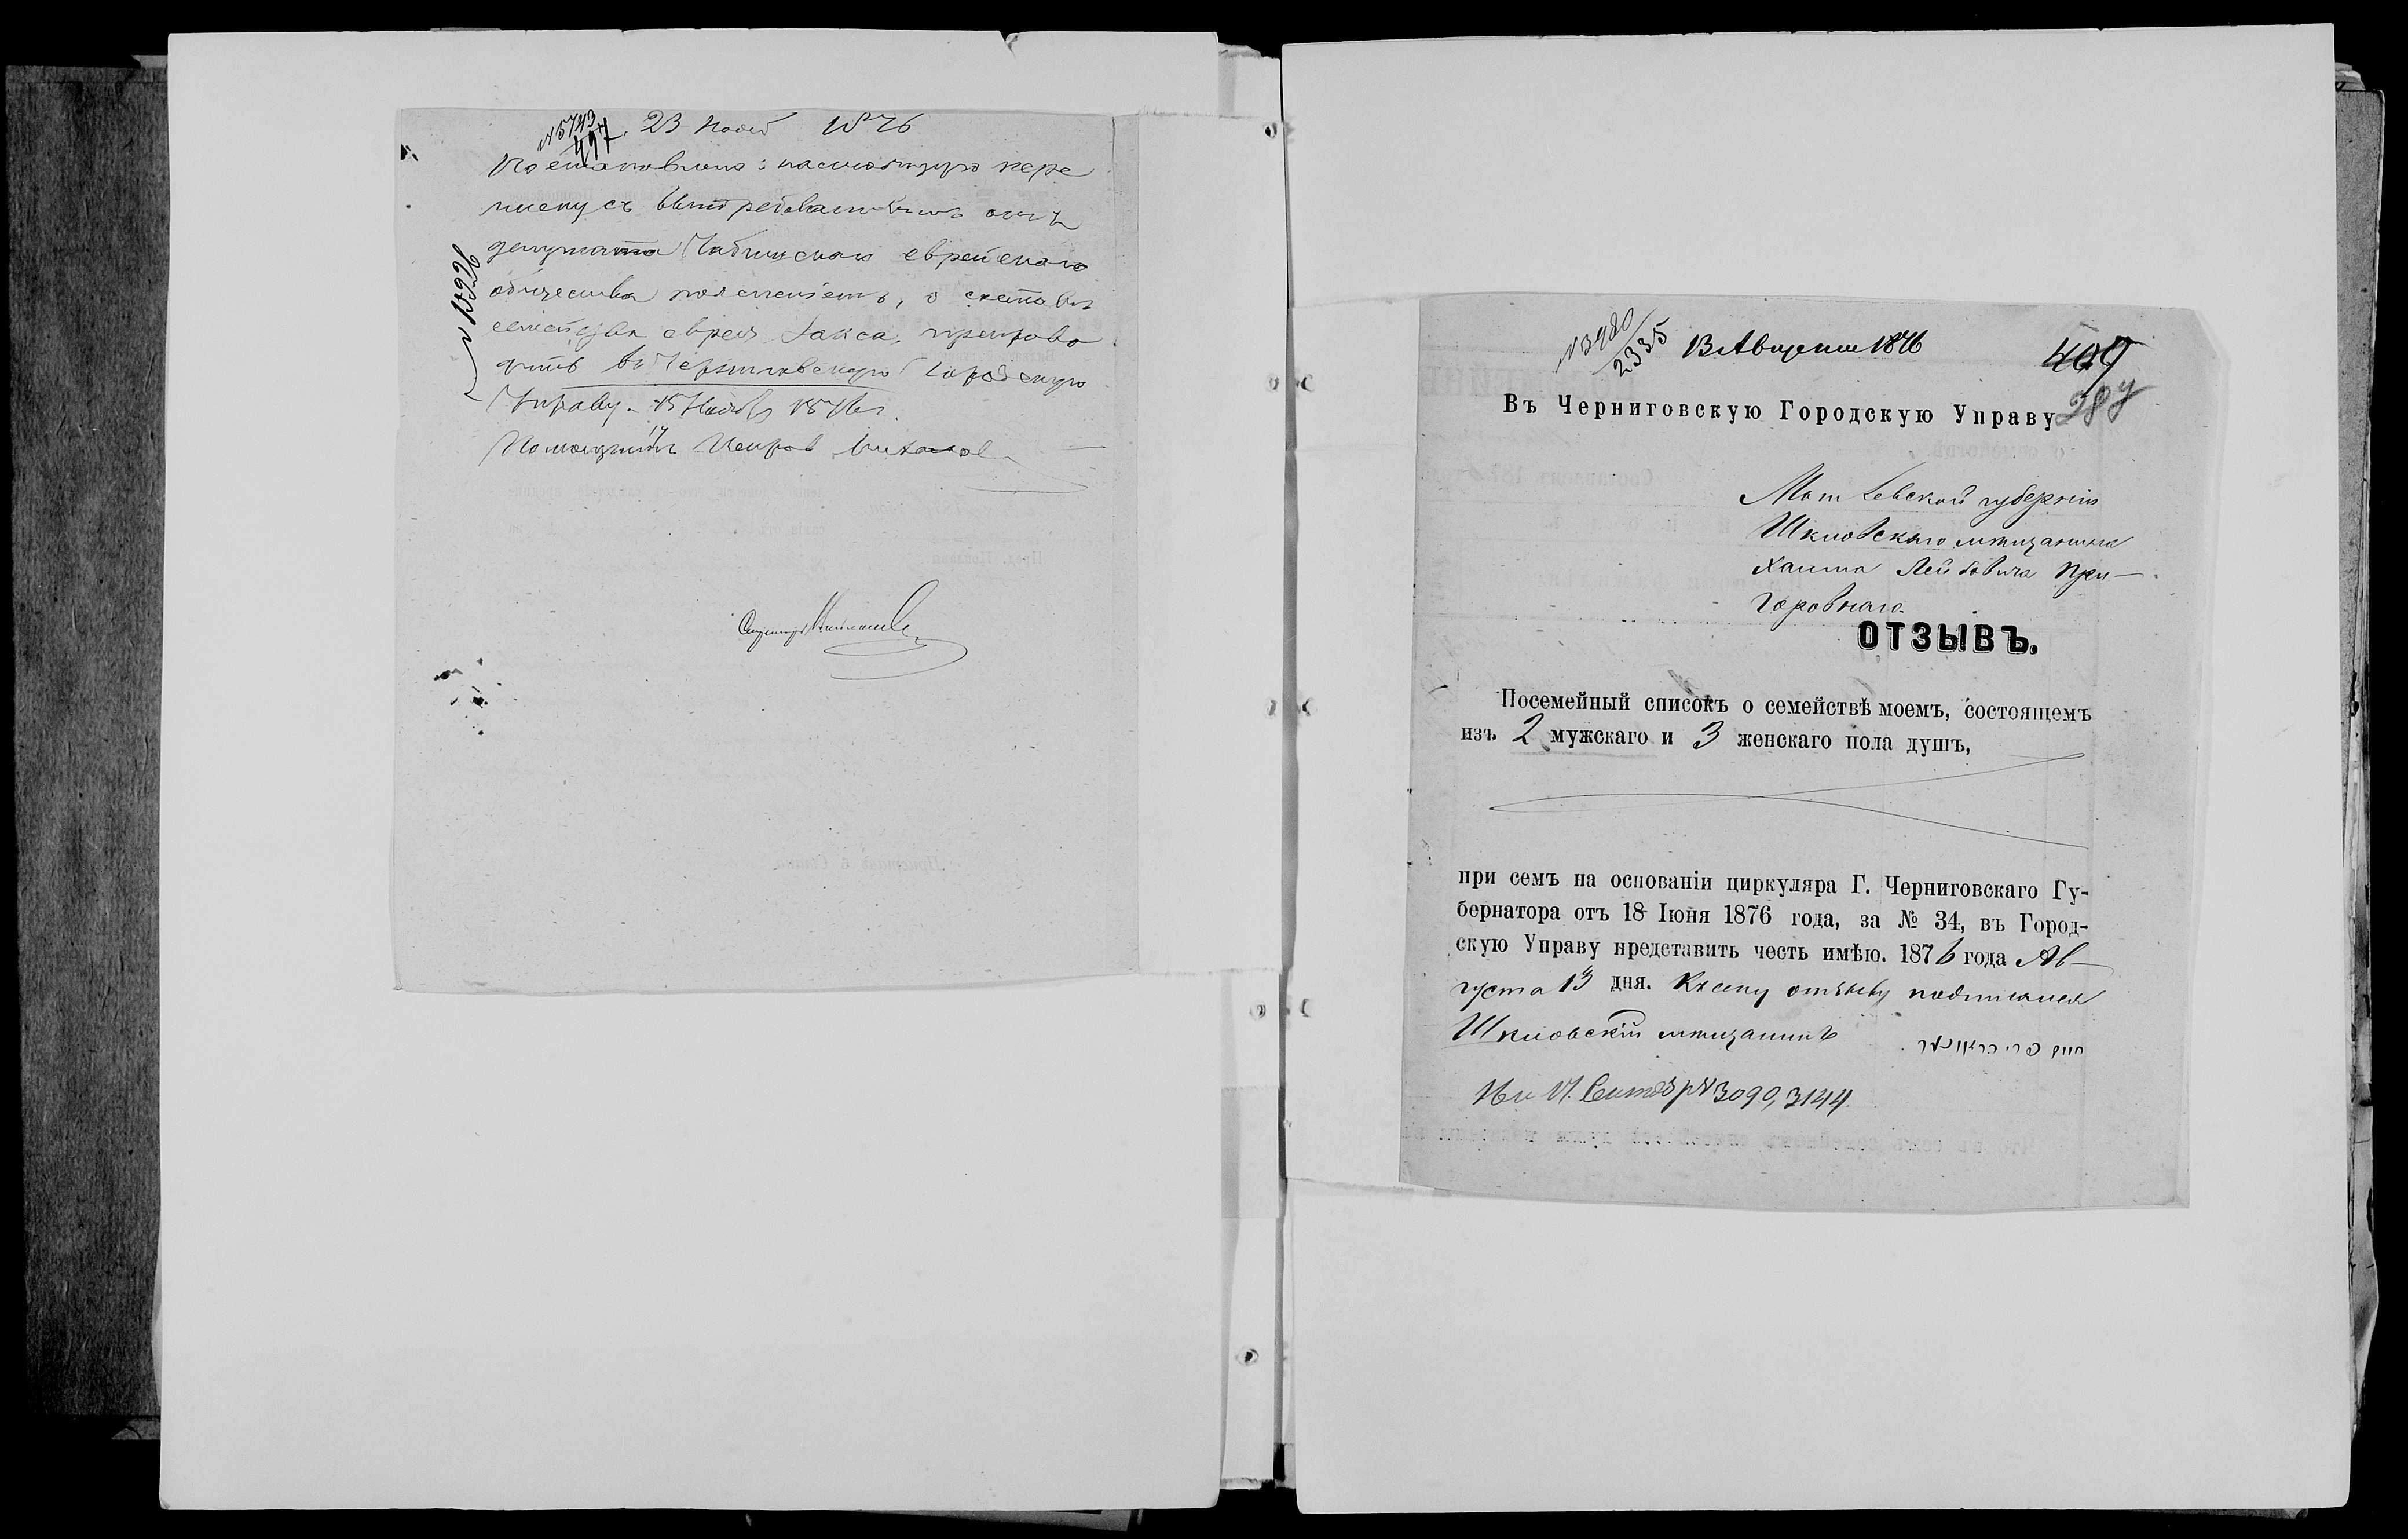 № 5743
497
23 Нояб 1876
Постановлено: настоящую пере
писку съ вытребованнымъ отъ
депутата еврейского
общества , о составѣ
семейства еврея Закса, препрово
дить въ Черниговскую Городскую
Управу 15 Ноября 1876 г.
№ 18926
Помощникъ
№ 3480
2335
13 Августа 1876
409
287
Въ Черниговскую Городскую Управу
Могилевской губерніи
Шкловскаго мѣщанина
Хаима Лейбовича При-
горовнаго
ОТЗЫВЪ.
Посемейный списокъ о семействѣ моемъ, состоящемъ
изъ 2 мужскаго и 3 женскаго пола душъ,
при семъ на основаніи циркуляра Г. Черниговскаго Гу-
бернатора отъ 18 Іюня 1876 года, за № 34, въ Город-
скую Управу представить честь имѣю. 1876 года Ав-
густа 13 дня. Къ сему отзыву подписался
Шкловскій мѣщанинъ חיים
Исп. 17. Сентяб № 3090, 3144